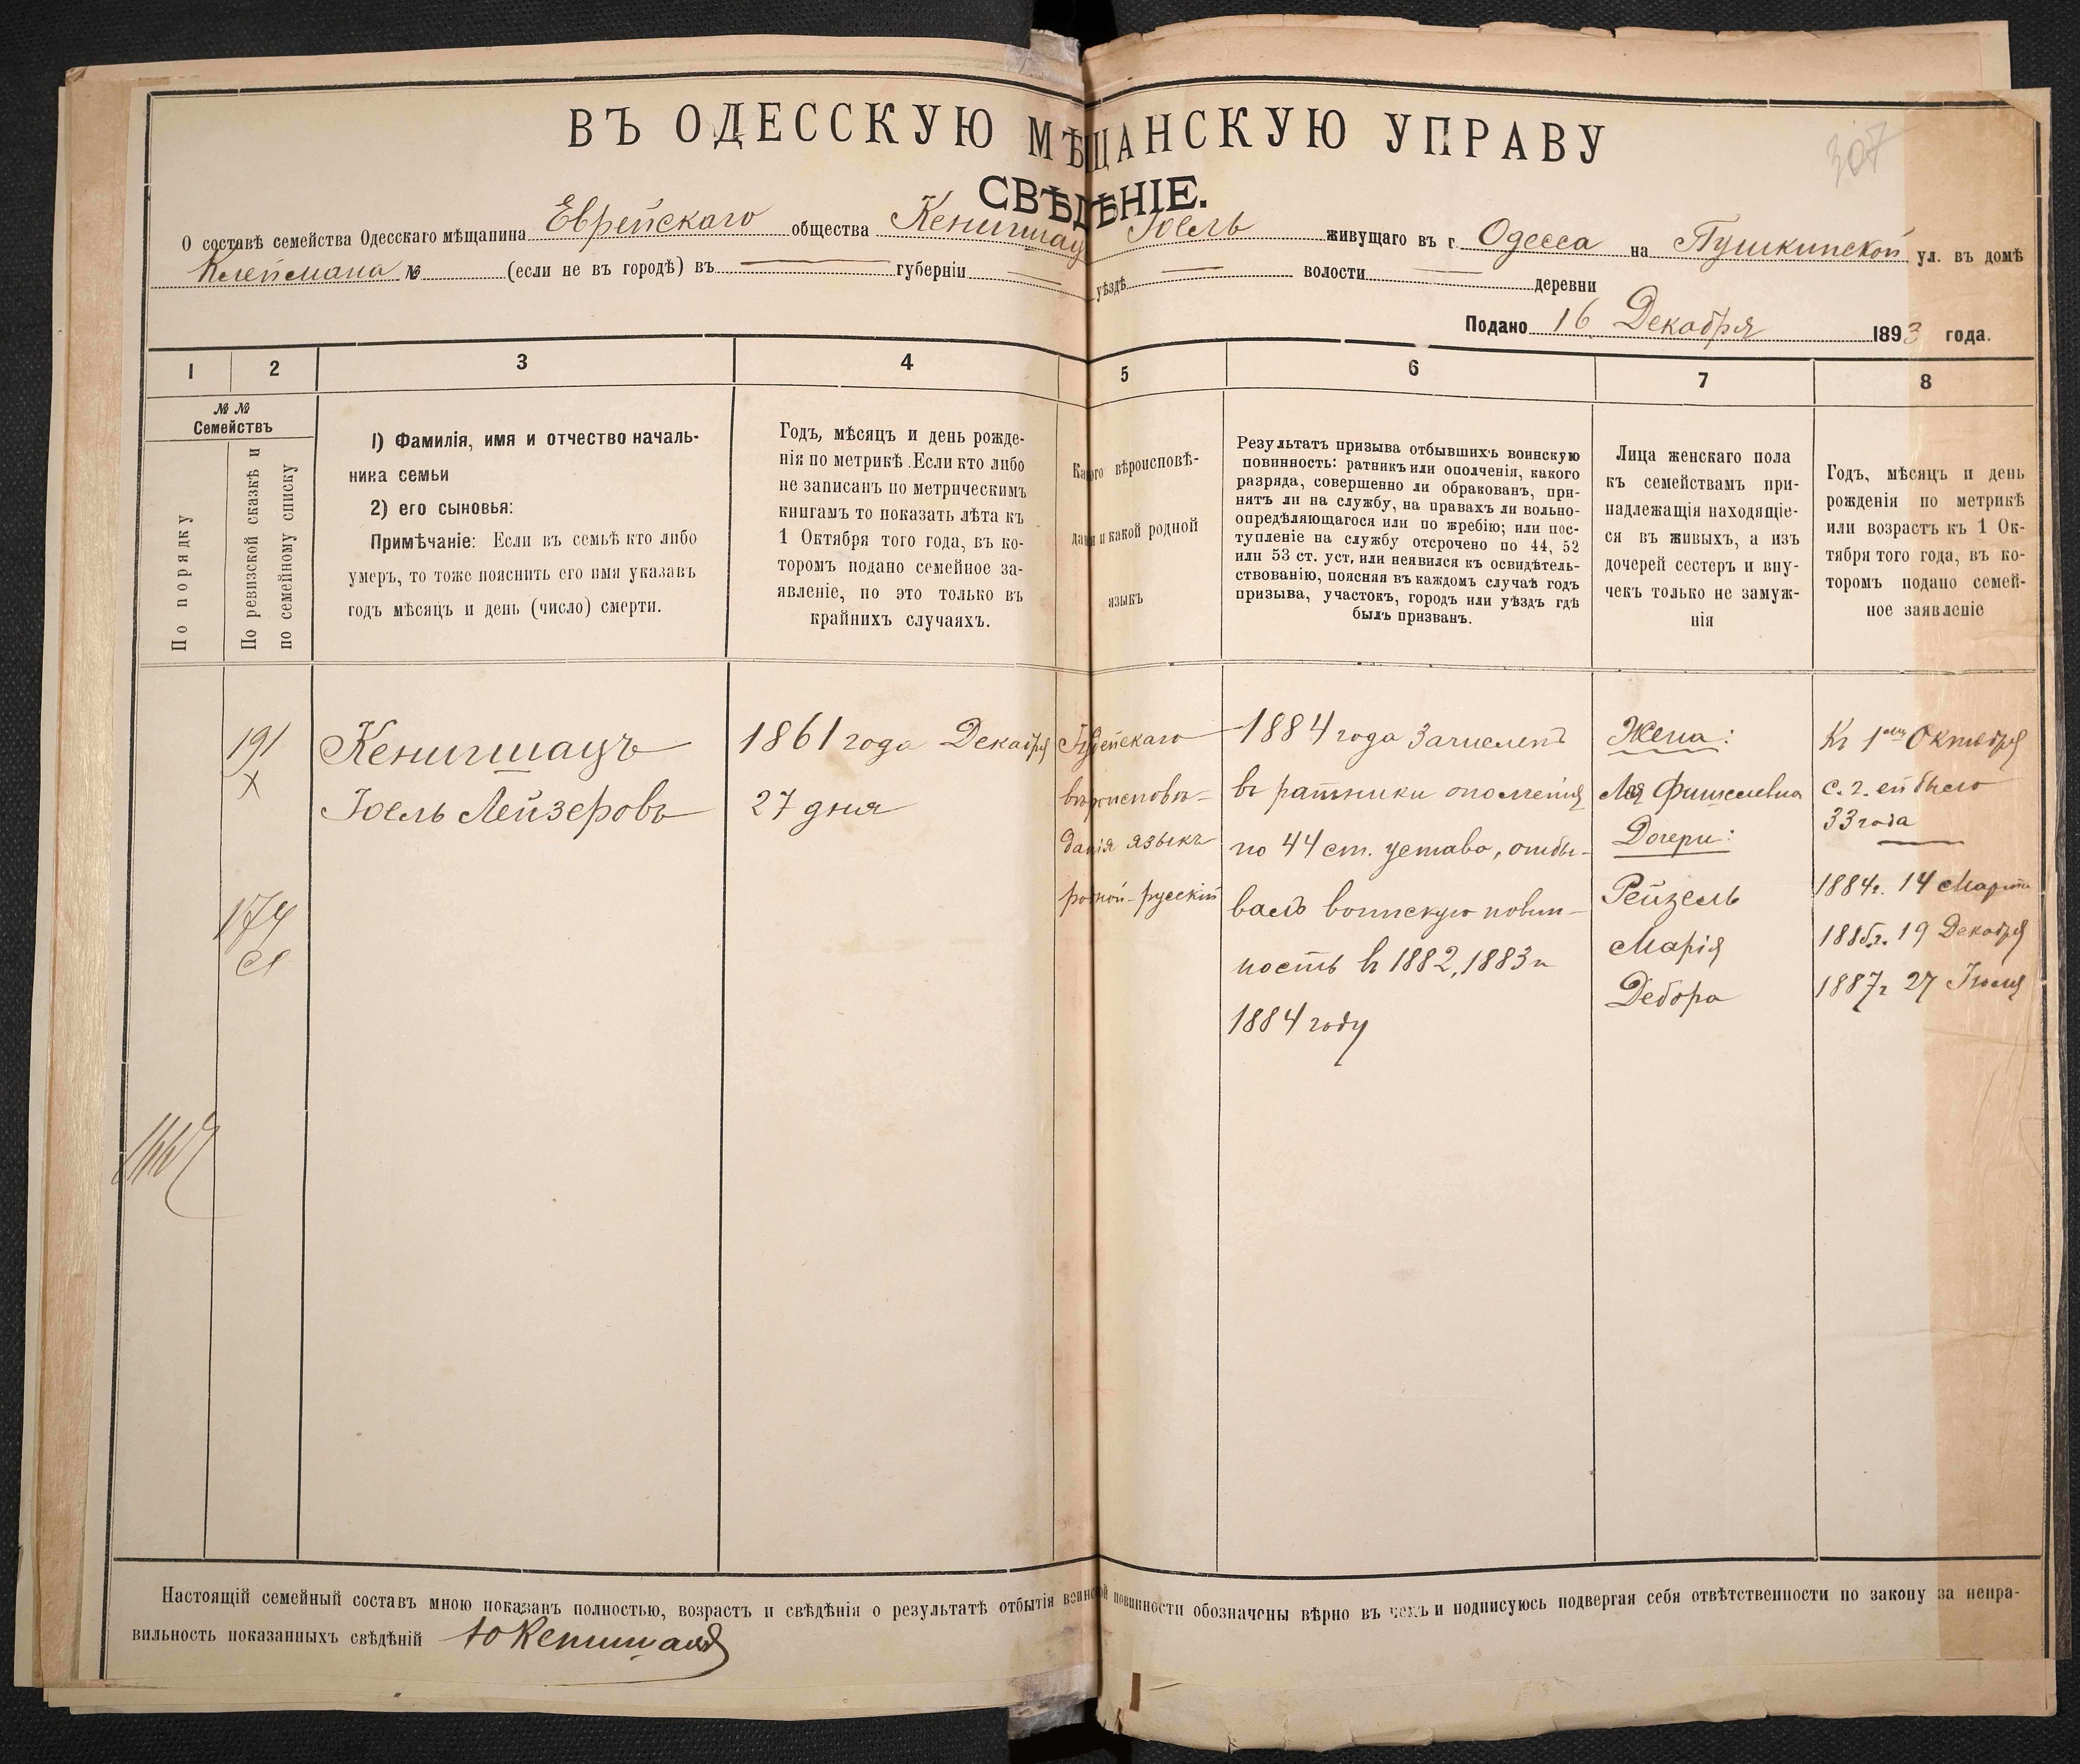 ВЪ ОДЕССКУЮ МѢЩАНСКУЮ УПРАВУ
307
СВѢДѢНІЕ.
О составѣ семейства Одесскаго мѣщанина Еврейскаго общества Кенигшац Іоель живущаго въ г. Одесса на Пушкинской ул. въ домѣ
Клейсмана № (если не въ городѣ) въ губерніи уѣздѣ волости деревни
Подано 16 Декабря 1893 года.
1 2 3 4 5 6 7 8
№ № Семействъ
По порядку
По ревизской сказкѣ и
по семейному списку
1) Фамилія, имя и отчество началь-
ника семьи
2) его сыновья:
Примѣчаніе: Если въ семьѣ кто либо
умеръ, то тоже пояснить его имя указавъ
годъ мѣсяцъ и день (число) смерти.
Годъ, мѣсяцъ и день рожде-
нія по метрикѣ. Если кто либо
не записанъ по метрическимъ
книгамъ то показать лѣта къ
1 Октября того года, въ ко-
торомъ подано семейное за-
явленіе, но это только въ
крайнихъ случаяхъ.
Какого вѣроисповѣ-
данія и какой родной
языкъ
Результатъ призыва отбывшихъ воинскую
повинность: ратникъ или ополченія, какого
разряда, совершенно ли обракованъ, при-
нятъ ли на службу, на правахъ ли вольно-
опредѣляющагося или по жребію; или пос-
тупленіе на службу отсрочено по 44, 52
или 53 ст. уст, или неявился къ освидѣтель-
ствованію, поясняя въ каждомъ случаѣ годъ
призыва, участокъ, городъ или уѣздъ гдѣ
былъ призванъ.
Лица женскаго пола
къ семействамъ при-
надлежащія находящіе-
ся въ живыхъ, а изъ
дочерей сестеръ и вну-
чекъ только не замуж-
нія
Годъ, мѣсяцъ и день
рожденія по метрикѣ
или возрастъ къ 1 Ок-
тября того года, въ ко-
торомъ подано семей-
ное заявленіе
191
х
174
Кенигшацъ
Іоель Лейзеровъ
1861 года Декабря
27 дня
Іудейскаго
вѣроисповѣ-
данія языкъ
родной - русскій
1884 года Зачисленъ
въ ратники ополченія
по 44 ст. устава, отбы-
валъ воинскую повин-
ность въ 1882, 1883 и
1884 году
Жена:
Лея Фишелевна
Дочери:
Рейзель
Марія
Дебора
Къ 1му Октября
с. г. ей было
33 года
1884г. 14 Марта
1885г. 19 Декабря
1887г 27 Іюля
Настоящій семейный составъ мною показанъ полностью, возрастъ и свѣдѣнія о результатѣ отбытія воинской повинности обозначены вѣрно въ чемъ и подписуюсь подвергая себя отвѣтственности по закону за непра-
вильность показанныхъ свѣдѣній